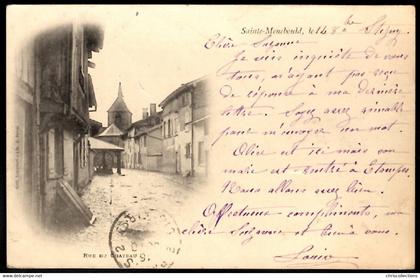 Sainte-Menehould, le 14 8bre
Chère Suzanne
Je suis inquiète de vous
tous, n'ayant pas reçu
de réponse à ma dernière
lettre. Soyez assez aimable
pour m'envoyer un mot.
ici mais
mari est rentré à Etampes.
Nous allons assez bien.
Affectueux compliments, ma
chère Suzanne, et à vous.
Louise
RUE DU CHATEAU